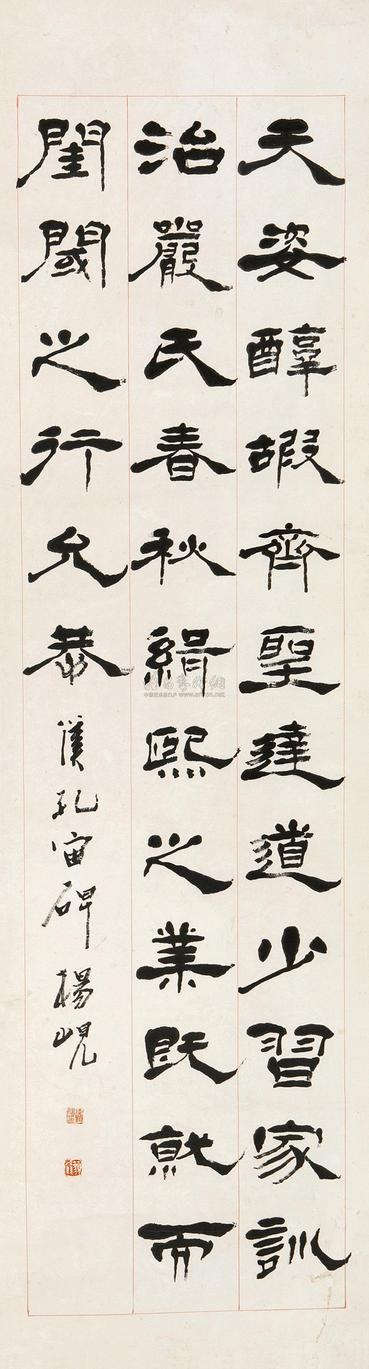 天姿醇嘏齊聖達道少習家訓
治嚴氏春秋緝熙之業既就而
閨閾之行允恭 漢孔宙碑 楊峴